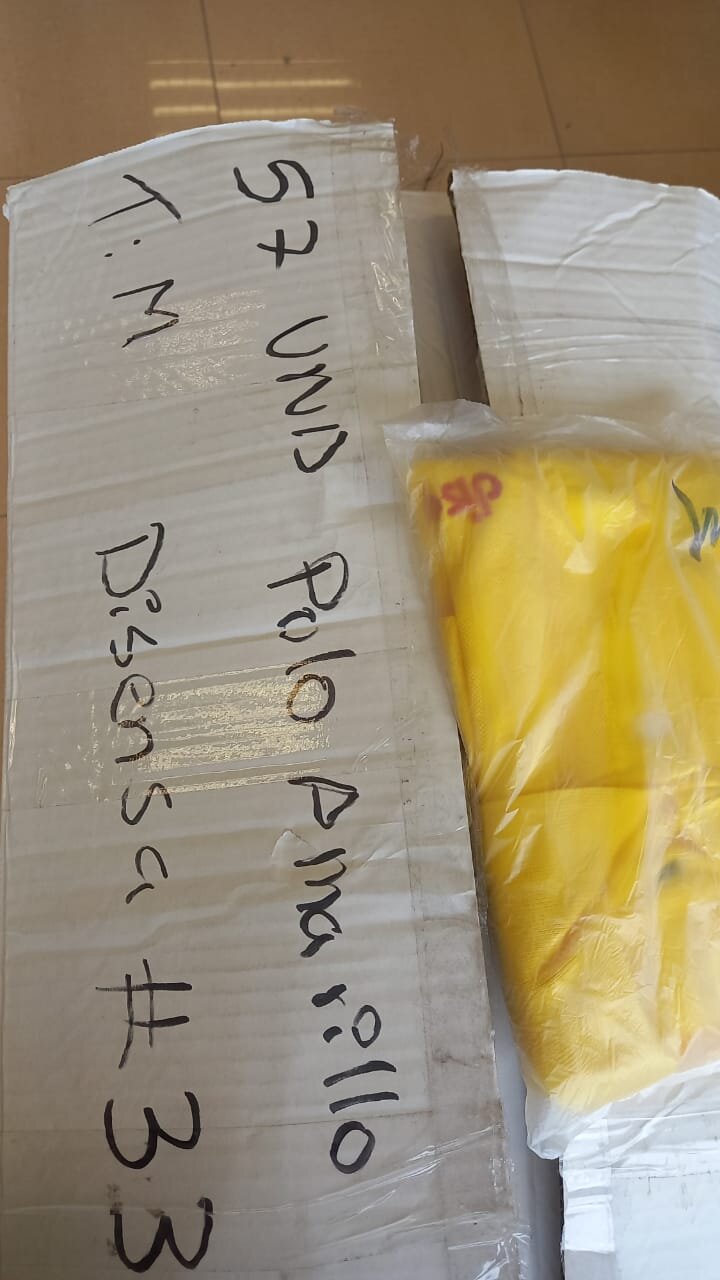 57 UND Polo Amarillo
T.M Disensa # 33